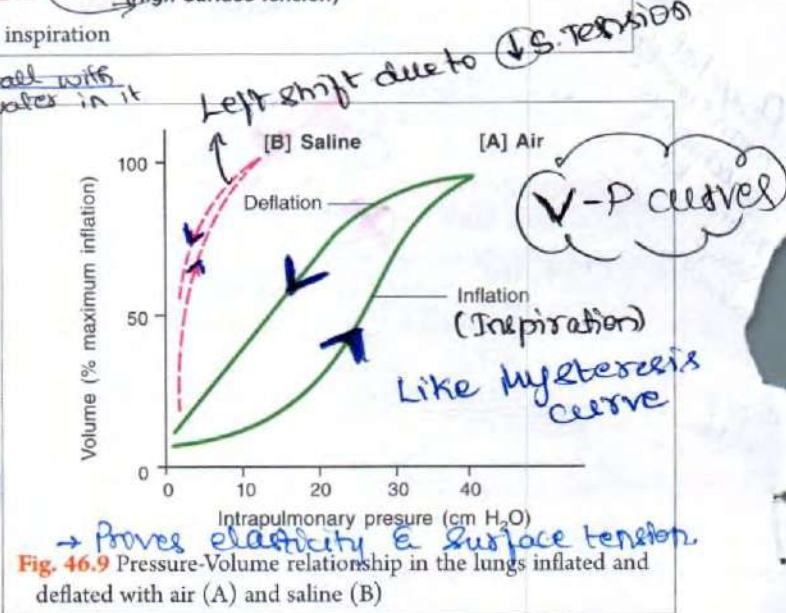 inspiration
all with
water in it
Left shift due to ↓ S. Tension
[B] Saline
[A] Air
V-P curves
100
Deflation
50
Inflation
(Inspiration)
Like Hysteresis
curve
Volume (% maximum inflation)
0
0 10 20 30 40
Intrapulmonary presure (cm H₂O)
→ Proves elasticity & Surface tension
Fig. 46.9 Pressure-Volume relationship in the lungs inflated and
deflated with air (A) and saline (B)